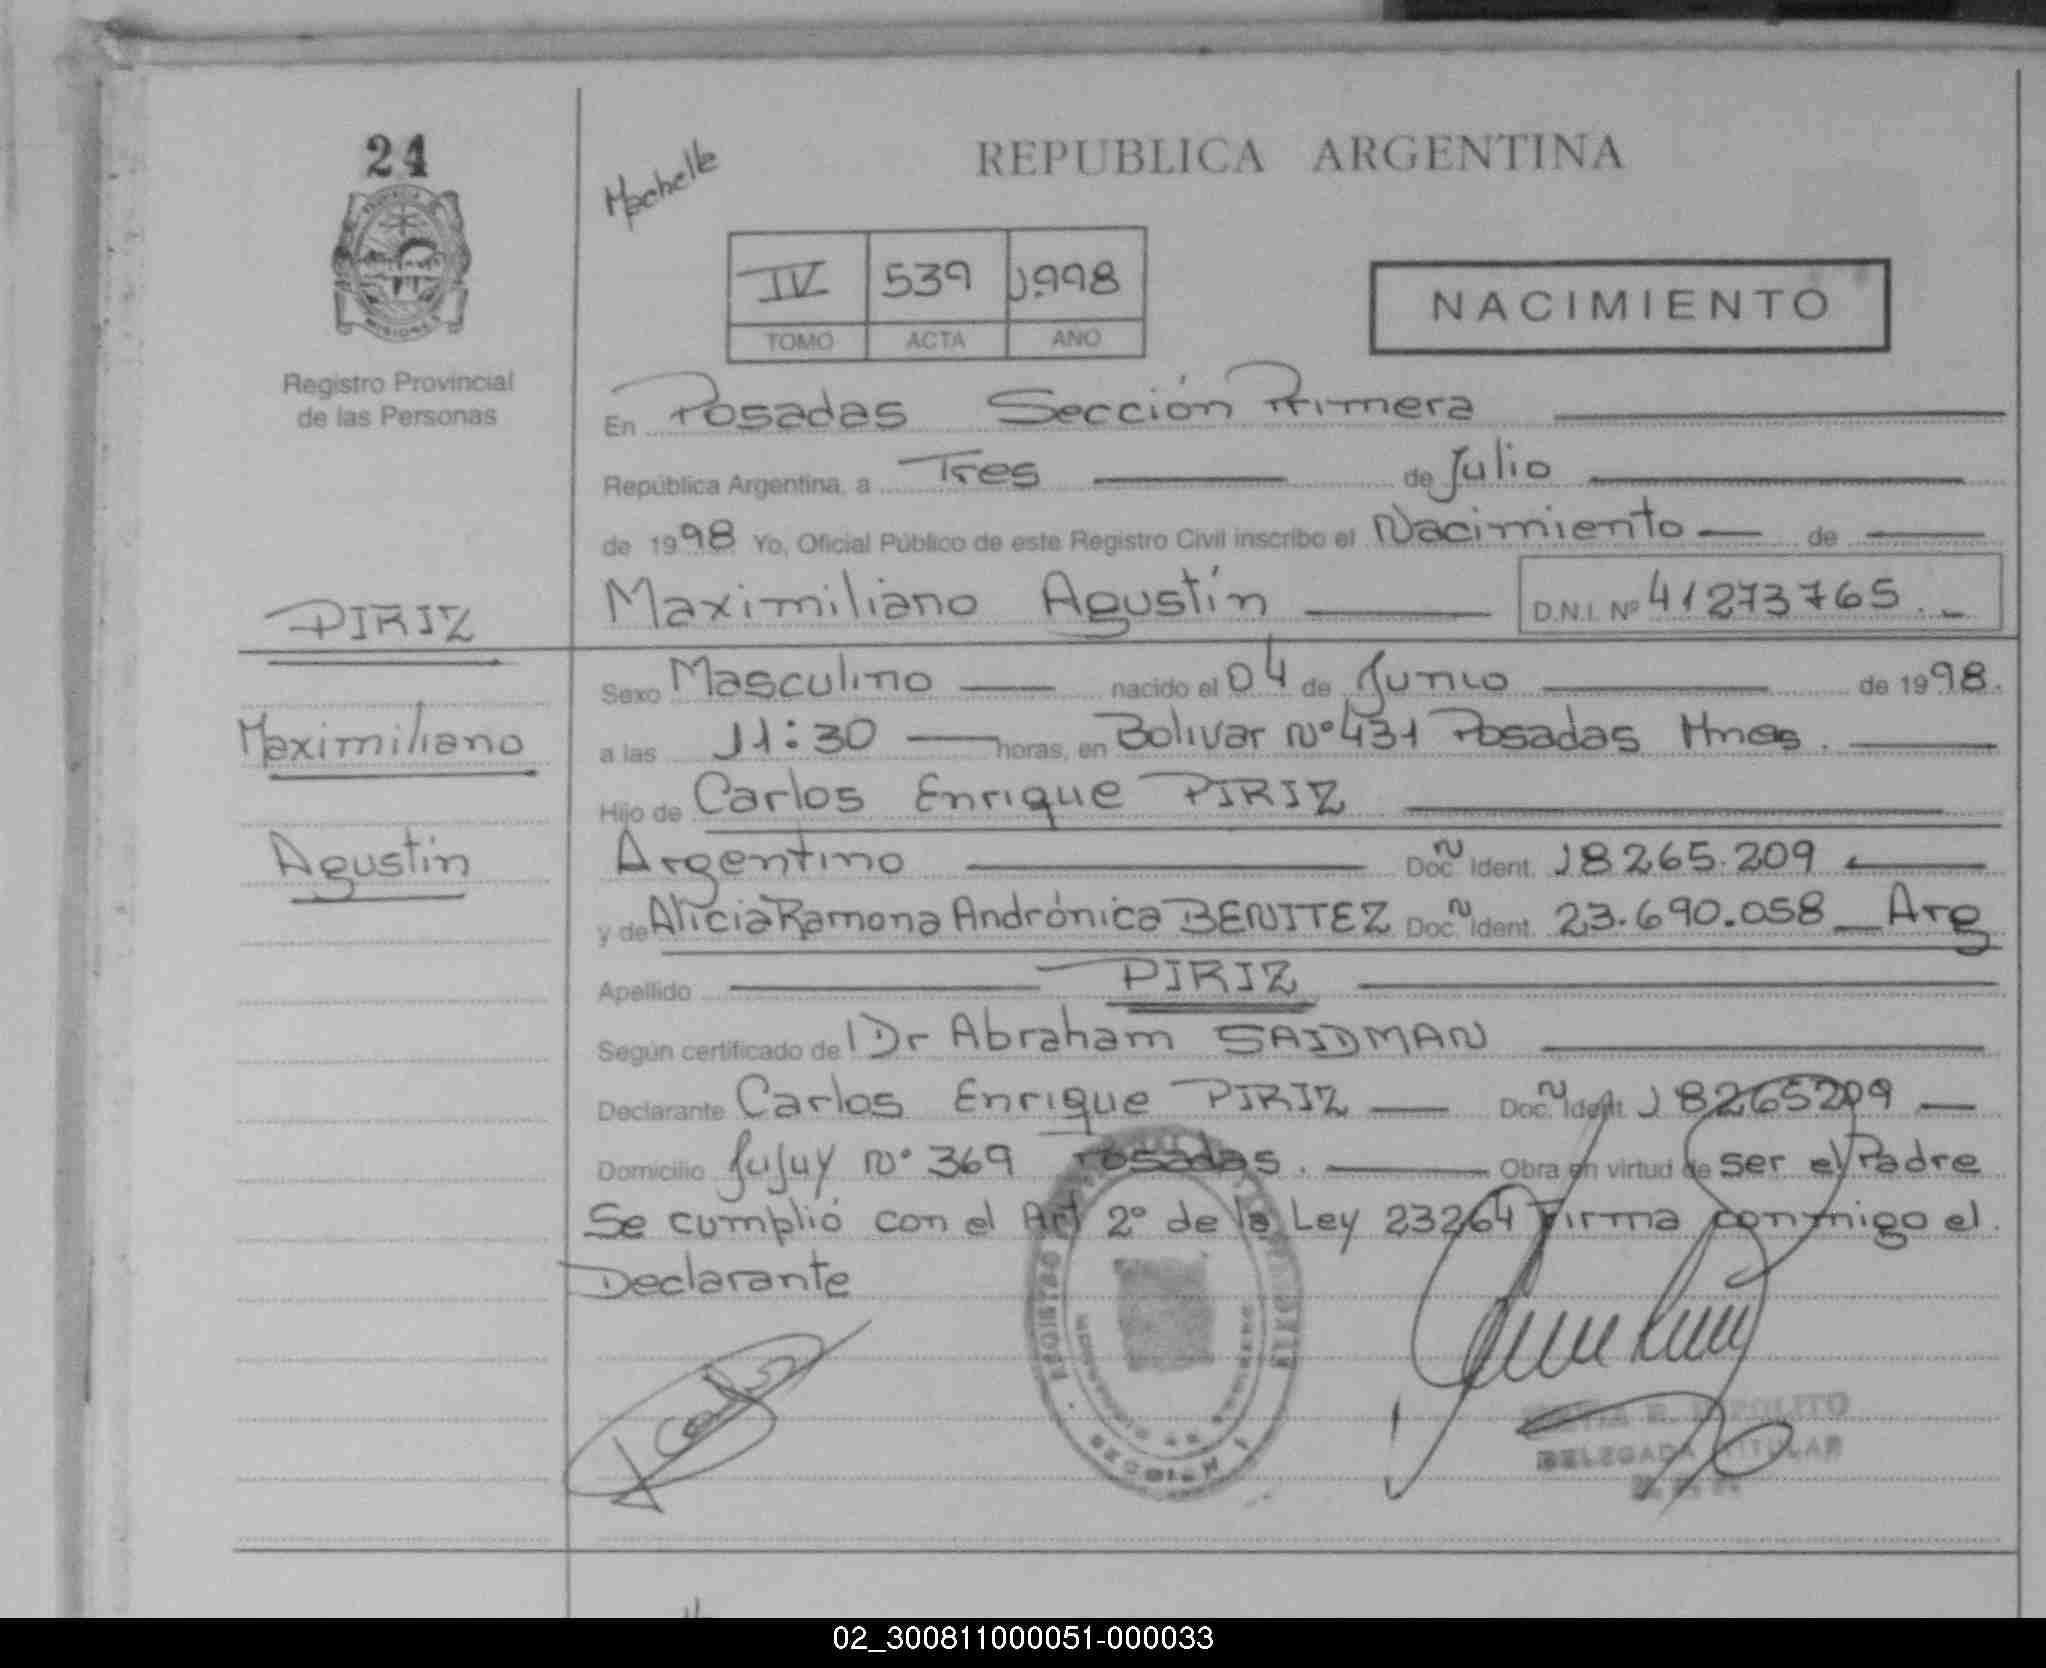 24
MISIONES
Registro Provincial
de las Personas
PIRIZ
Maximiliano
Agustín
REPUBLICA ARGENTINA
IV 539 1998
TOMO ACTA AÑO
NACIMIENTO
En Posadas Sección Primera
República Argentina, a Tres de Julio
de 1998 Yo, Oficial Público de este Registro Civil inscribo el Nacimiento de
Maximiliano Agustín D.N.I. Nº 41273765.
Sexo Masculino nacido el 04 de Junio de 1998.
a las 11:30 horas, en Bolivar Nº 431 Posadas Mnes.
Hijo de Carlos Enrique PIRIZ
Argentino Doc. Ident. 18265.209
y de Alicia Ramona Andrónica BENITEZ Doc. Ident. 23.690.058 Arg
Apellido PIRIZ
Según certificado de Dr Abraham SAIDMAN
Declarante Carlos Enrique PIRIZ Doc. Ident. 18265209
Domicilio Jujuy Nº 369 Posadas. Obra en virtud de ser el Padre
Se cumplió con el Art 2º de la Ley 23264 Firma conmigo el
Declarante
DELEGADA TITULAR
02_300811000051-000033